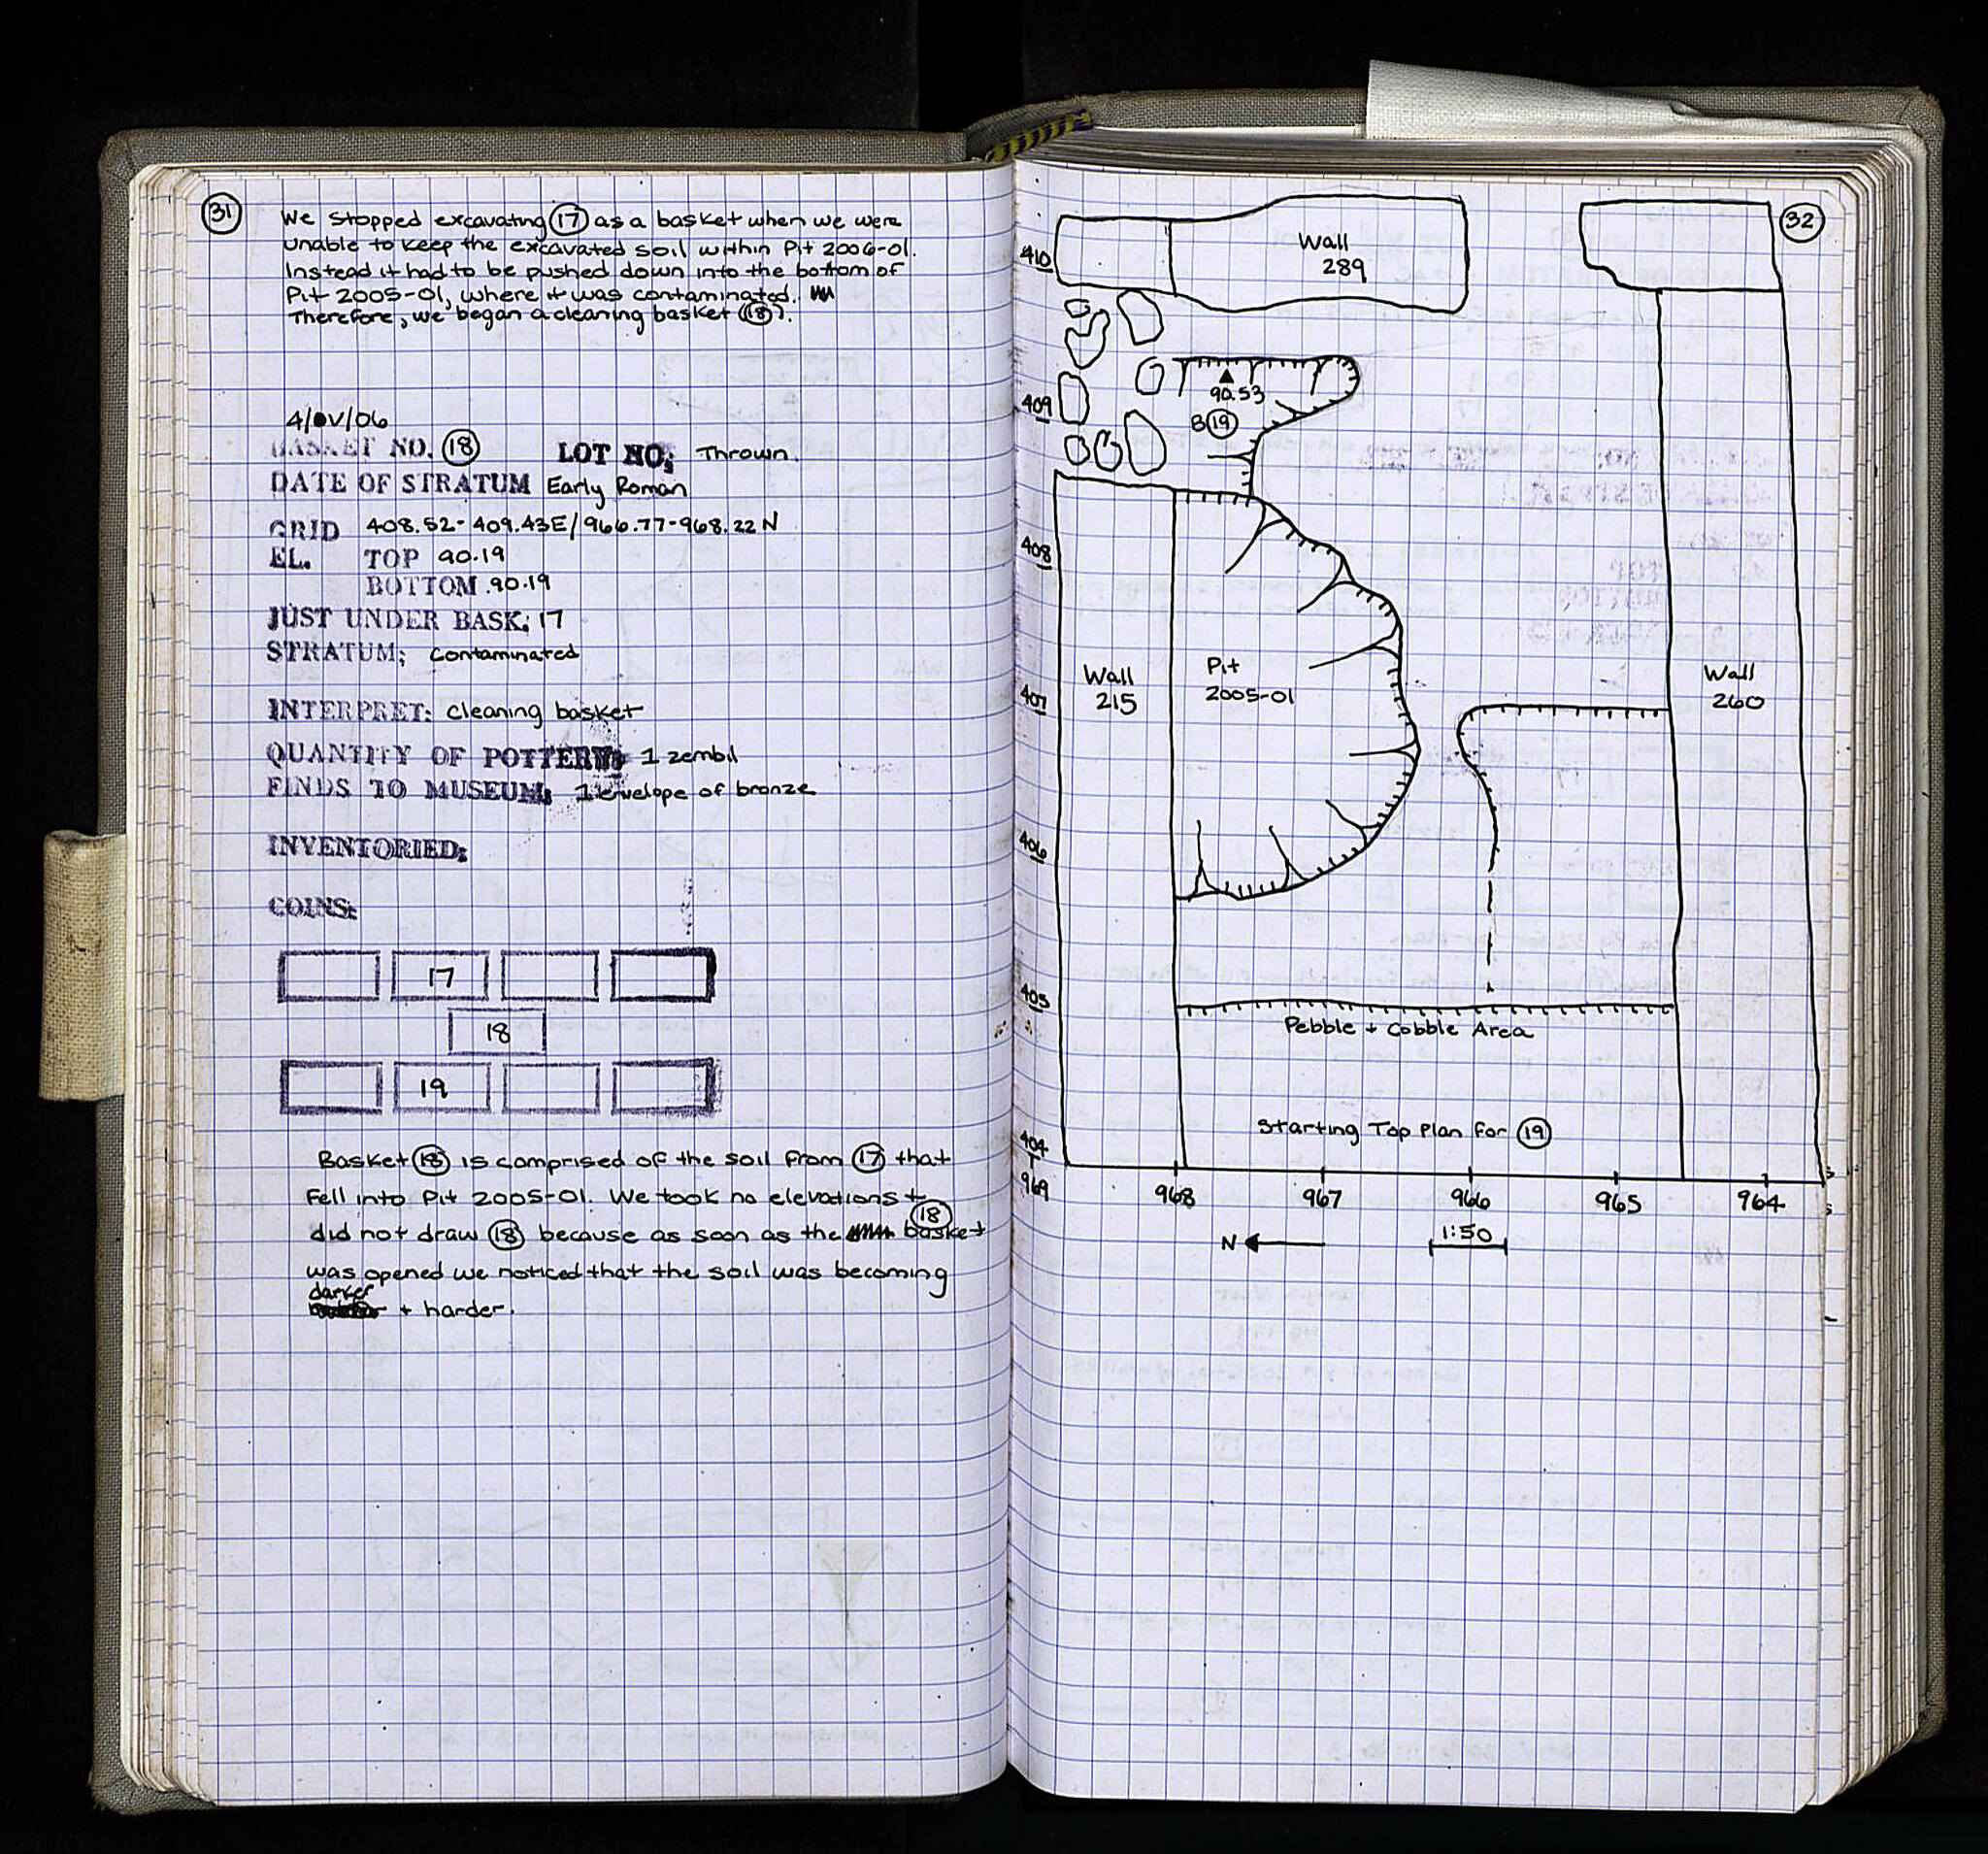 31
We stopped excavating 17 as a basket when we were
unable to keep the excavated soil within Pit 2006-01.
Instead it had to be pushed down into the bottom of
Pit 2005-01, where it was contaminated.
Therefore, we began a cleaning basket (18).
4/V/06
BASKET NO. 18 LOT NO; Thrown.
DATE OF STRATUM Early Roman
GRID 408.52-409.43E/966.77-968.22N
EL. TOP 90.19
BOTTOM .90.19
JUST UNDER BASK; 17
STRATUM; contaminated
INTERPRET: cleaning basket
QUANTITY OF POTTERY; 1 zembil
FINDS TO MUSEUM; 1 envelope of bronze
INVENTORIED;
COINS:
17
18
19
Basket 18 is comprised of the soil from 17 that
fell into Pit 2005-01. We took no elevations +
did not draw 18 because as soon as the basket 18
was opened we noticed that the soil was becoming
darker + harder.
32
410
Wall
289
409
90.53
B19
408
407
Wall
215
Pit
2005-01
Wall
260
406
405
Pebble + Cobble Area
Starting Top Plan for 19
404
969 968 967 966 965 964
N 1:50